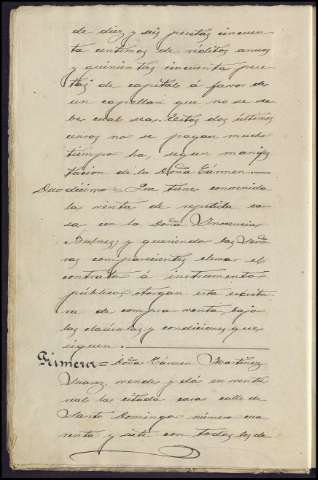 de diez y seis pesetas cincuen-
ta centimos de reditos anuos
y quinientas cincuenta pese-
tas de capital á favor de
un capellan que no se sa-
be cual sea. Estos dos ultimos
censos no se pagan mucho
tiempo ha, segun manifes-
tacion de la Doña Cármen.
Duodécimo = Que tiene convenida
la venta de repetida ca-
sa con la Doña Inocencia
y queriendo las Seño-
ras comparecientes elevar el
contrato á instrumento
público, otorgan esta escritu-
ra de compra-venta, bajo
las cláusulas y condiciones que
siguen.
Primera = Doña Cármen Martinez
Suarez, vende y dá en venta
real la citada casa calle de
Santo Domingo número cua-
renta y siete con todos los de-